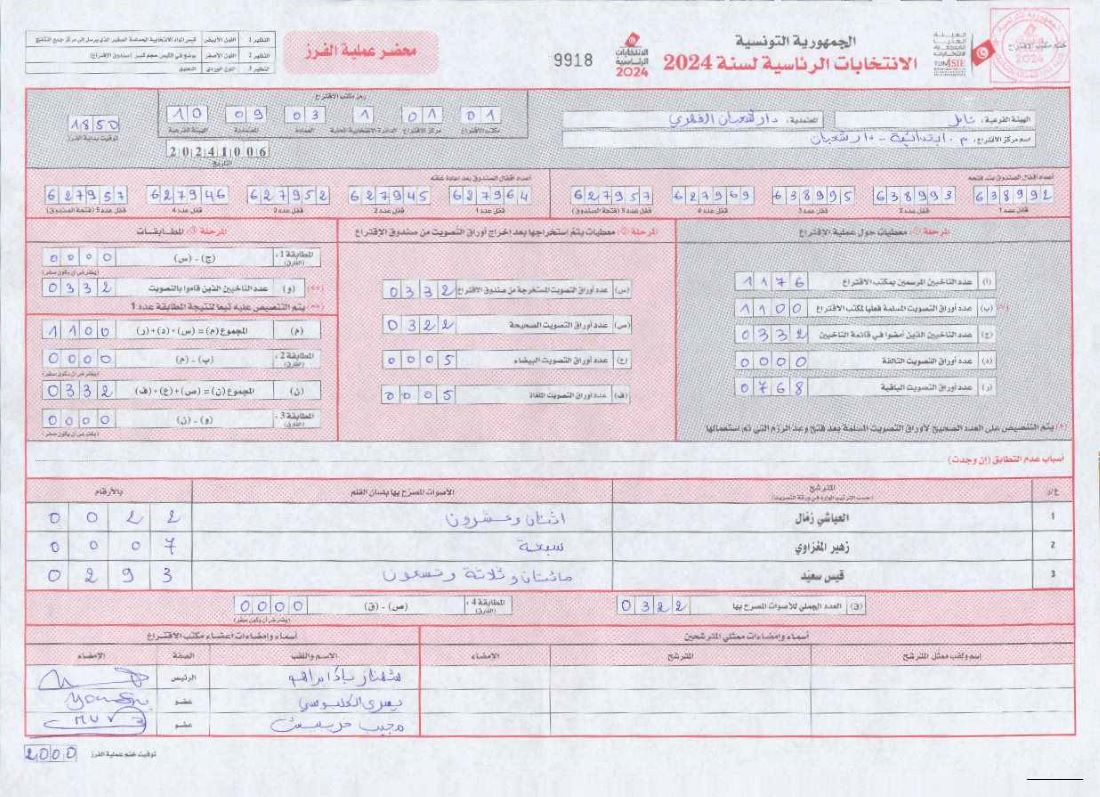 الجمهورية التونسية
الانتخابات الرئاسية لسنة 2024
9918
الانتخابات الرئاسية 2024
محضر عملية الفرز
النظير 1 اللون الأبيض
النظير 2 اللون الأصفر
النظير 3 اللون الوردي التعليق
ختم مكتب الاقتراع
الهيئة الفرعية: نابل
المعتمدية: دار شعبان الفهري
اسم مركز الاقتراع: م. ابتدائية - دار شعبان
رمز مكتب الاقتراع
01 01 1 03 09 10
مكتب الاقتراع مركز الاقتراع الدائرة الانتخابية المحلية العمادة المعتمدية الهيئة الفرعية
20241006
التاريخ
1850
توقيت بداية الفرز
أعداد أقفال الصندوق عند فتحه
638992 638993 638995 627969 627957
قفل عدد 1 قفل عدد 2 قفل عدد 3 قفل عدد 4 قفل عدد 5 (فتحة الصندوق)
أعداد أقفال الصندوق بعد إعادة غلقه
627964 627945 627952 627946 627957
قفل عدد 1 قفل عدد 2 قفل عدد 3 قفل عدد 4 قفل عدد 5 (فتحة الصندوق)
المرحلة 1: معطيات حول عملية الاقتراع
(أ) عدد الناخبين المرسمين بمكتب الاقتراع 1176
(ب) عدد أوراق التصويت المسلمة فعليا لمكتب الاقتراع 1100
(ج) عدد الناخبين الذين أمضوا في قائمة الناخبين 0332
(د) عدد أوراق التصويت التالفة 0000
(ر) عدد أوراق التصويت الباقية 0768
(*) يتم التنصيص على العدد الصحيح لأوراق التصويت المسلمة بعد فتح وعد الرزم التي تم استعمالها
المرحلة 2: معطيات يتم استخراجها بعد اخراج أوراق التصويت من صندوق الاقتراع
(س) عدد أوراق التصويت المستخرجة من صندوق الاقتراع 0332
(ص) عدد أوراق التصويت الصحيحة 0322
(ع) عدد أوراق التصويت البيضاء 0005
(ف) عدد أوراق التصويت الملغاة 0005
المرحلة 3: المطابقات
المطابقة 1: (الفارق) (ج) - (س) 0000
(يفترض أن يكون صفر)
(و) عدد الناخبين الذين قاموا بالتصويت (**) 0332
(**) يتم التنصيص عليه تبعا لنتيجة المطابقة عدد 1
(م) المجموع (م) = (س) + (د) + (ر) 1100
المطابقة 2: (الفارق) (ب) - (م) 0000
(يفترض أن يكون صفر)
(ن) المجموع (ن) = (ص) + (ع) + (ف) 0332
المطابقة 3: (الفارق) (و) - (ن) 0000
(يفترض أن يكون صفر)
أسباب عدم التطابق (إن وجدت)
ع/ر المترشح الأصوات المصرح بها بلسان القلم بالأرقام
(حسب الترتيب الوارد في ورقة التصويت)
1 العياشي زمال اثنتان وعشرون 0022
2 زهير المغزاوي سبعة 0007
3 قيس سعيد مائتان وثلاثة وتسعون 0293
(ق) العدد الجملي للأصوات المصرح بها 0322
المطابقة 4: (الفارق) (ص) - (ق) 0000
(يفترض أن يكون صفر)
أسماء وإمضاءات ممثلي المترشحين
إسم ولقب ممثل المترشح المترشح الامضاء
أسماء وإمضاءات أعضاء مكتب الاقتراع
الاسم واللقب الصفة الإمضاء
الرئيس
عضو
عضو
توقيت ختم عملية الفرز 2000